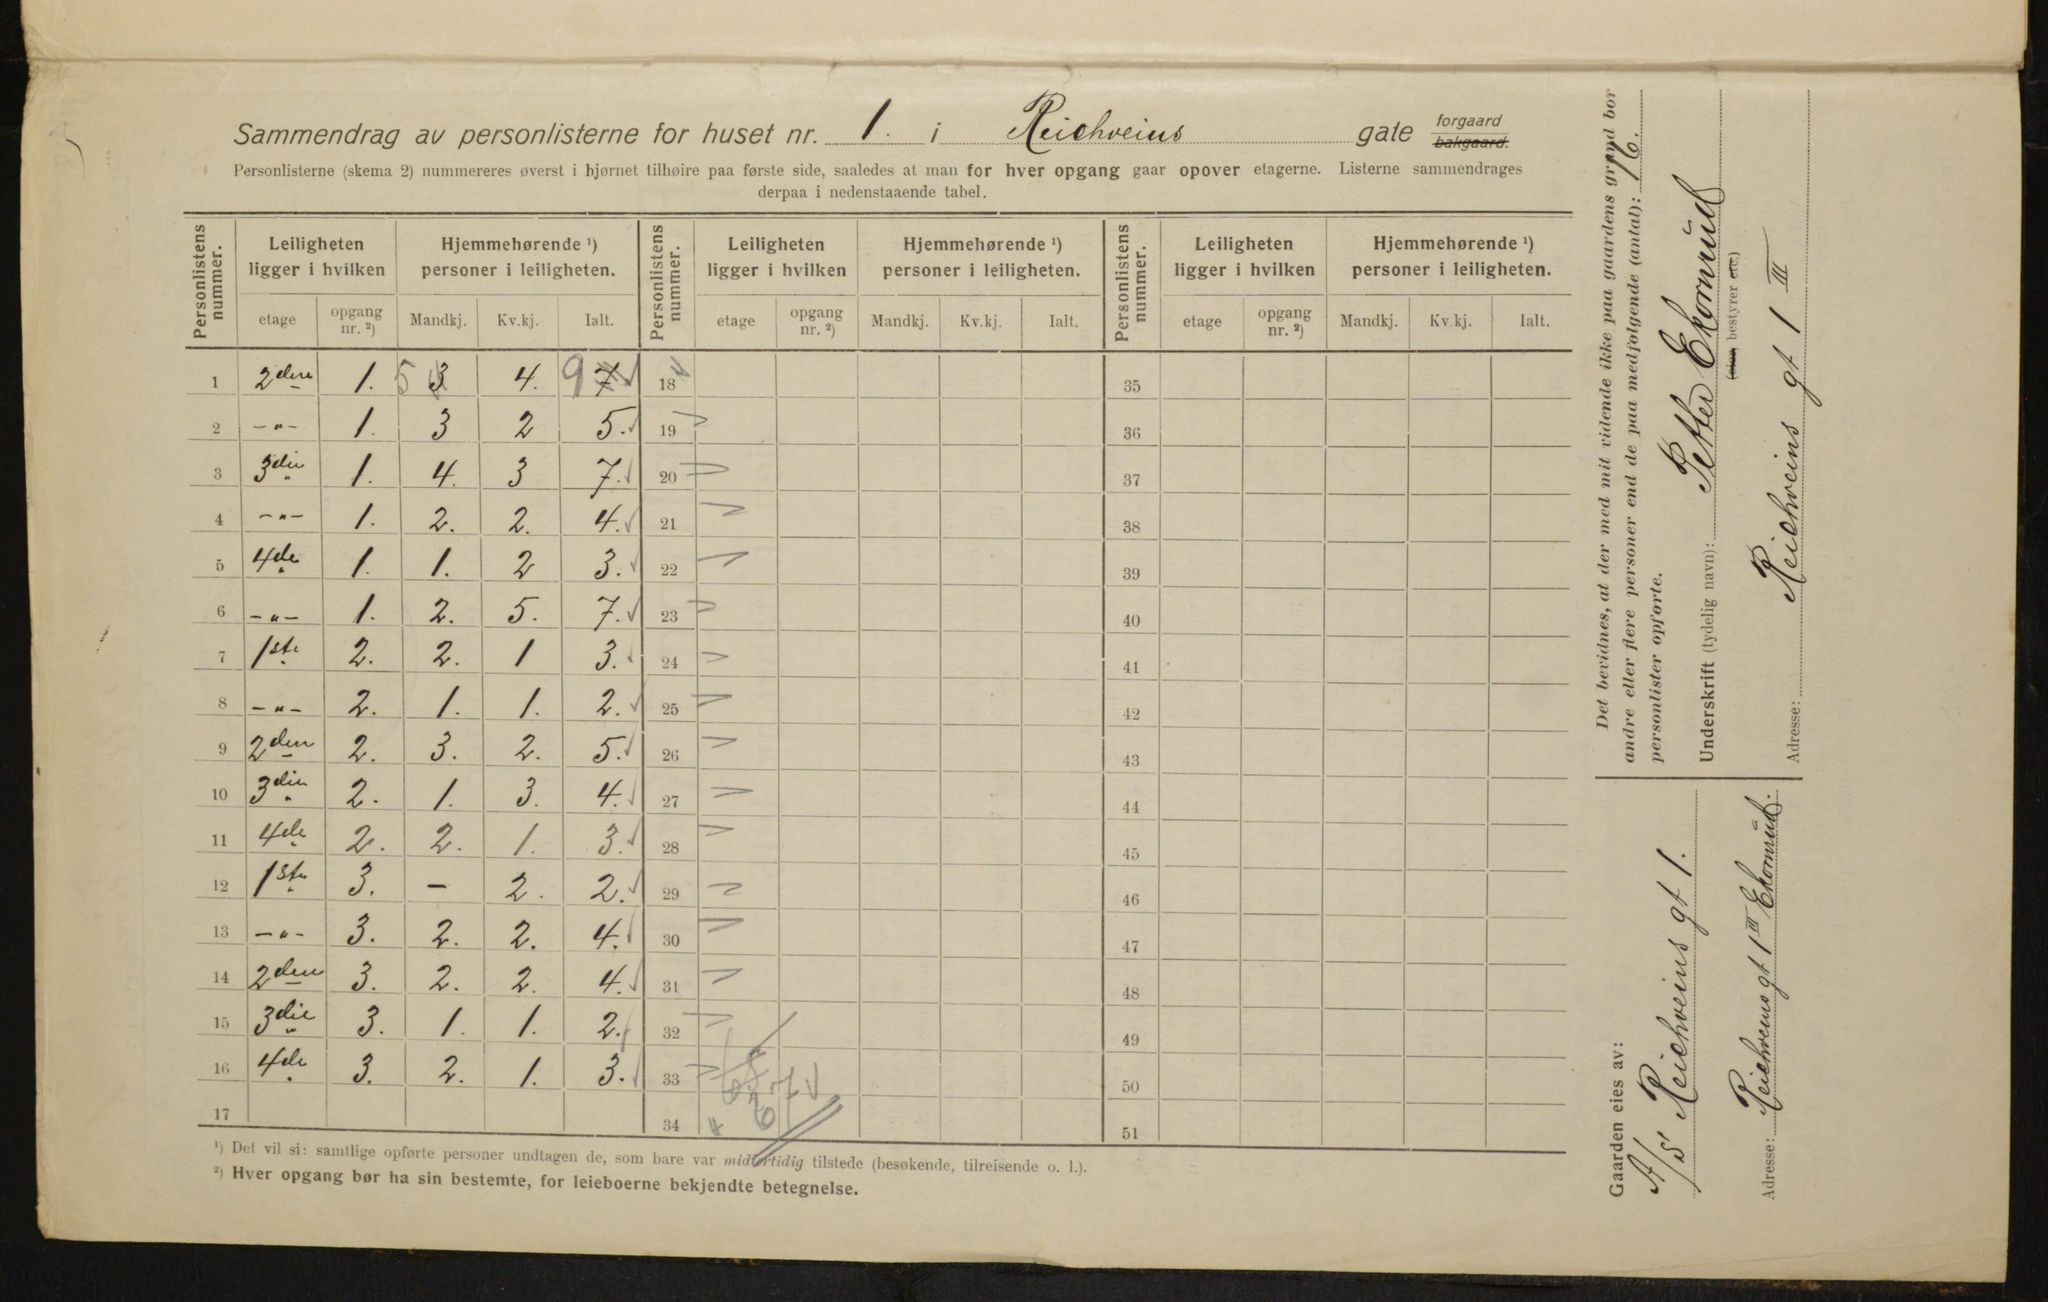 Sammendrag av personlisterne for huset nr. 1. i Reichveins gate forgaard bakgaard.
Personlisterne (skema 2) nummereres øverst i hjørnet tilhøire paa første side, saaledes at man for hver opgang gaar opover etagerne. Listerne sammendrages
derpaa i nedenstaaende tabel.
Personlistens nummer. Leiligheten ligger i hvilken Hjemmehørende ¹) personer i leiligheten. Personlistens nummer. Leiligheten ligger i hvilken Hjemmehørende ¹) personer i leiligheten. Personlistens nummer. Leiligheten ligger i hvilken Hjemmehørende ¹) personer i leiligheten.
etage opgang nr. ²) Mandkj. Kv.kj. Ialt. etage opgang nr. ²) Mandkj. Kv.kj. Ialt. etage opgang nr. ²) Mandkj. Kv.kj. Ialt.
1 2den 1. 5 3 4. 9 7 18 35
2 -"- 1. 3 2 5. 19 36
3 3die 1. 4. 3 7. 20 37
4 -"- 1. 2. 2. 4. 21 38
5 4de 1. 1. 2 3. 22 39
6 -"- 1. 2. 5. 7. 23 40
7 1ste 2. 2. 1 3. 24 41
8 -"- 2. 1. 1. 2. 25 42
9 2den 2. 3. 2. 5. 26 43
10 3die 2. 1. 3. 4. 27 44
11 4de 2. 2. 1. 3. 28 45
12 1ste 3. - 2. 2. 29 46
13 -"- 3. 2. 2. 4. 30 47
14 2den 3. 2. 2. 4. 31 48
15 3die 3. 1. 1. 2. 32 49
16 4de 3. 2. 1. 3. 33 50
17 34 51
¹) Det vil si: samtlige opførte personer undtagen de, som bare var midlertidig tilstede (besøkende, tilreisende o. l.).
²) Hver opgang bør ha sin bestemte, for leieboerne bekjendte betegnelse.
Det bevidnes, at der med mit vidende ikke paa gaardens grund bor
andre eller flere personer end de paa medfølgende (antal): 16.
personlister opførte.
Underskrift (tydelig navn): Petter Ekornrud
(eier, bestyrer etc.)
Adresse: Reichveins gt 1 III
Gaarden eies av:
A/S Reichveins gt 1.
Adresse: Reichveins gt 1 III Ekornrud.